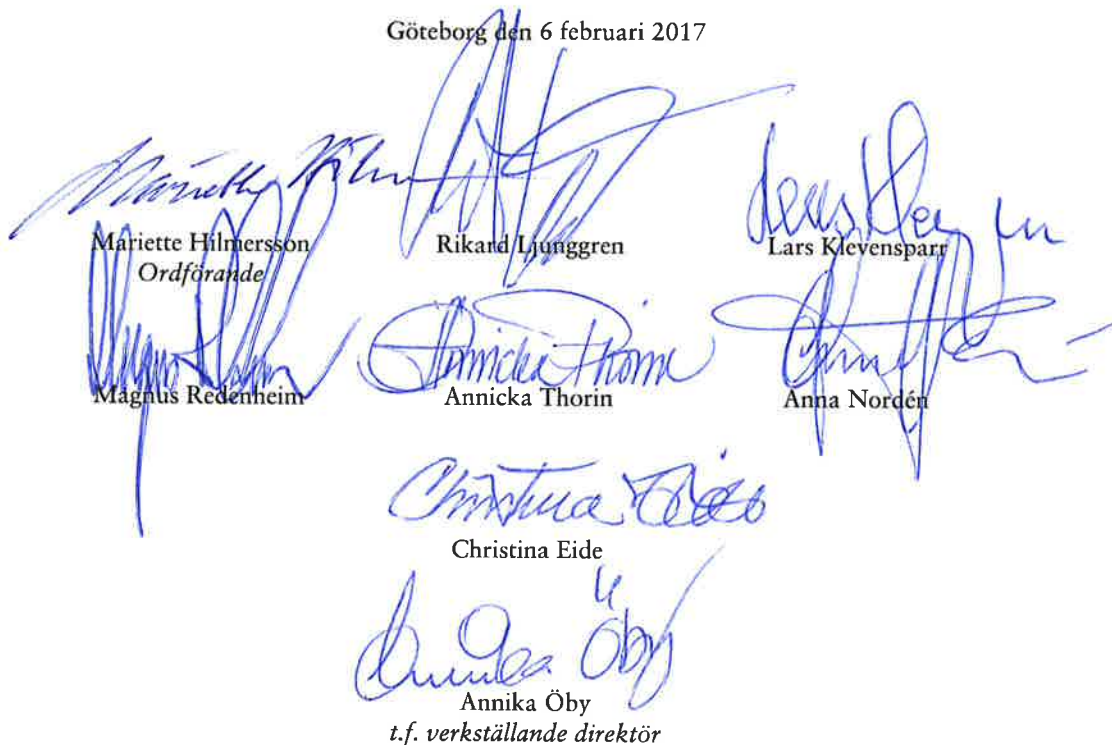 Göteborg den 6 februari 2017
Mariette Hilmersson Rikard Ljunggren Lars Klevensparr
Ordförande
Magnus Redenheim Annicka Thorin Anna Nordén
Christina Eide
Annika Öby
t.f. verkställande direktör